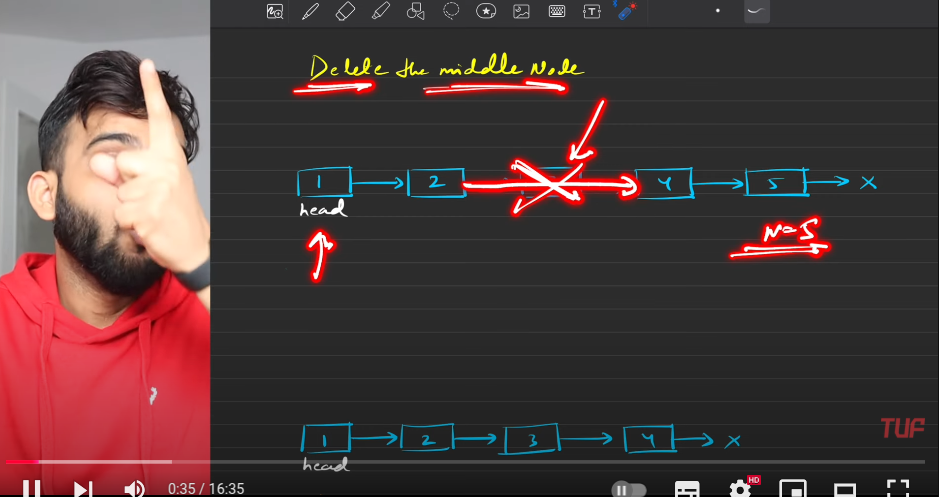 Delete the middle Node
1 2 4 5 X
head
N=5
TUF
1 2 3 4 X
head
0:35 / 16:35
HD